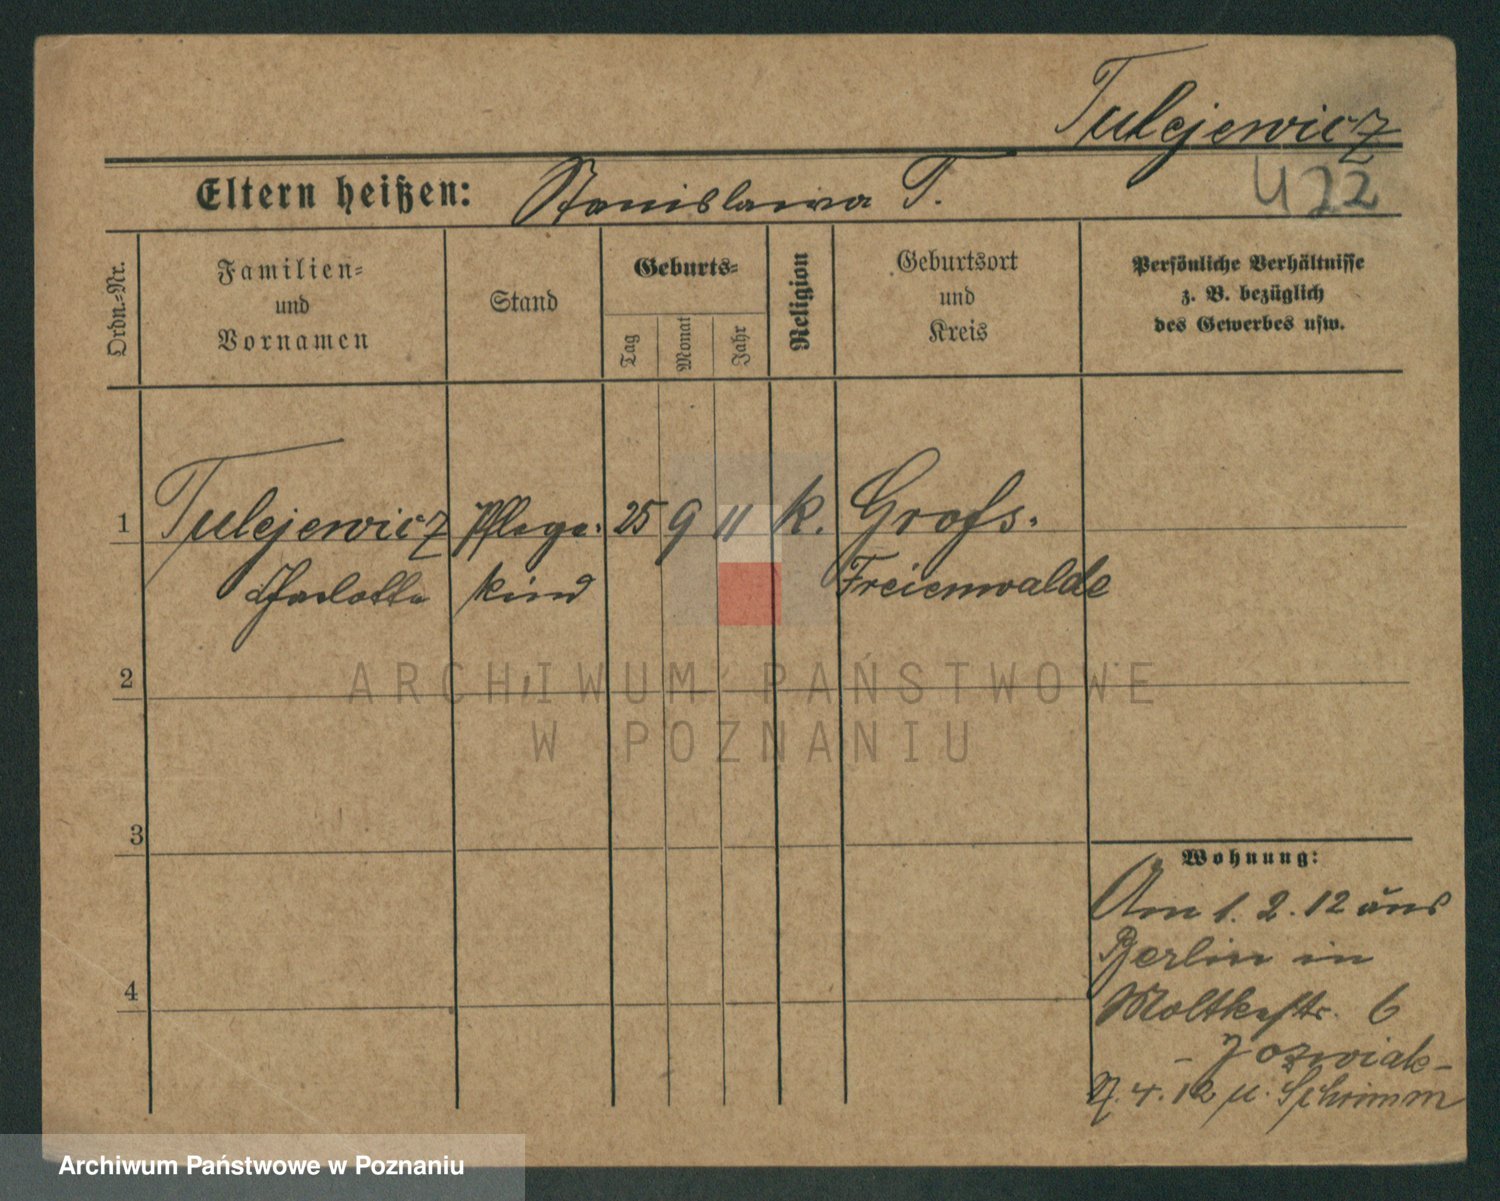 Tulejewicz
Eltern heißen: Stanislawa T.
U 22
Ordn.-Nr.
Familien-
und
Vornamen
Stand
Geburts-
Tag
Monat
Jahr
Religion
Geburtsort
und
Kreis
Persönliche Verhältnisse
z. B. bezüglich
des Gewerbes usw.
1 Tulejewicz Pflege- 25 9 11 k. Groß-
Charlotte kind Freienwalde
2
ARCHIWUM PAŃSTWOWE
W POZNANIU
3
Wohnung:
Am 1. 2. 12 aus
Berlin in
4
Moltkestr. 6
- Jozwiak -
4. 12 n. Schrimm
Archiwum Państwowe w Poznaniu